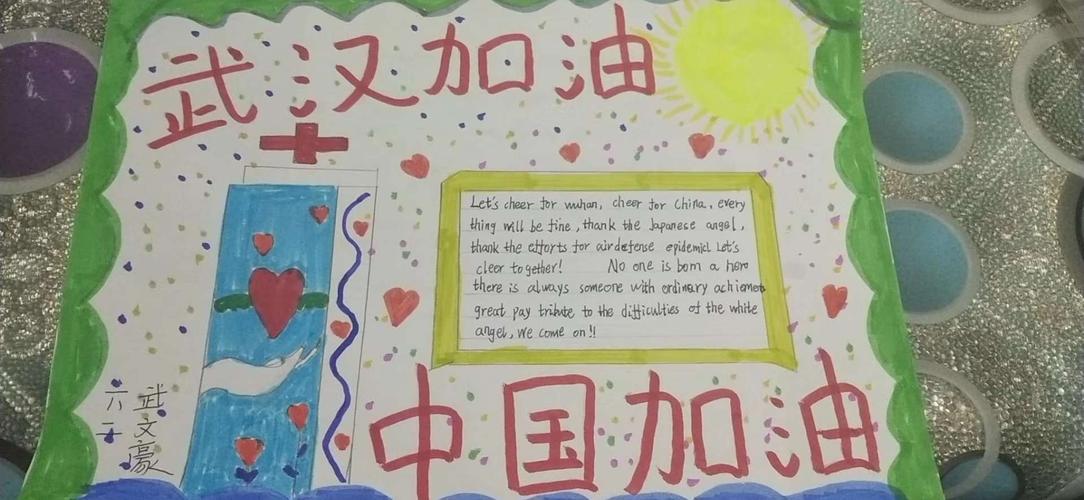 武汉加油
Let's cheer for wuhan, cheer for China, every
thing will be fine, thank the Japanese angel,
thank the efforts for airdefense epidemic! Let's
cleer together! No one is born a hero
there is always someone with ordinary achiement
great pay tribute to the difficulties of the white
angel, we come on!!
中国加油
六二
武文豪